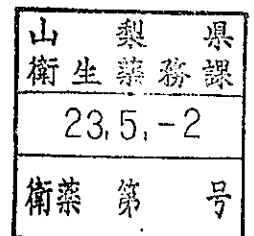 山梨県
衛生薬務課
23.5.-2
衛薬 第 号